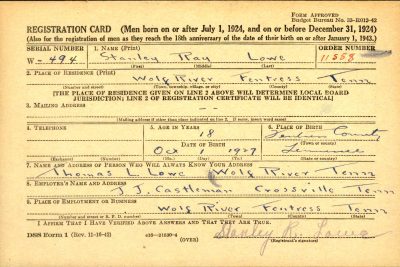 FORM APPROVED
Budget Bureau No. 33-R013-42
REGISTRATION CARD (Men born on or after July 1, 1924, and on or before December 31, 1924)
(Also for the registration of men as they reach the 18th anniversary of the date of their birth on or after January 1, 1943.)
SERIAL NUMBER 1. NAME (Print) ORDER NUMBER
W-494 Stanley Ray Lowe 11558
(First) (Middle) (Last)
2. PLACE OF RESIDENCE (Print)
Wolf River Fentress Tenn
(Number and street) (Town, township, village, or city) (County) (State)
[THE PLACE OF RESIDENCE GIVEN ON LINE 2 ABOVE WILL DETERMINE LOCAL BOARD
JURISDICTION; LINE 2 OF REGISTRATION CERTIFICATE WILL BE IDENTICAL]
3. MAILING ADDRESS
[Mailing address if other than place indicated on line 2. If same, insert word same]
4. TELEPHONE 5. AGE IN YEARS 6. PLACE OF BIRTH
18
DATE OF BIRTH (Town or county)
Oct 1
(Exchange) (Number) (Mo.) (Day) (Yr.) (State or country)
7. NAME AND ADDRESS OF PERSON WHO WILL ALWAYS KNOW YOUR ADDRESS
Thomas L Lowe Wolf River Tenn
8. EMPLOYER'S NAME AND ADDRESS
J. J. Castleman Crossville Tenn
9. PLACE OF EMPLOYMENT OR BUSINESS
Wolf River Fentress Tenn
(Number and street or R. F. D. number) (Town) (County) (State)
I AFFIRM THAT I HAVE VERIFIED ABOVE ANSWERS AND THAT THEY ARE TRUE.
DSS Form 1 (Rev. 11-16-42) (OVER) Stanley R. Lowe
(Registrant's signature)